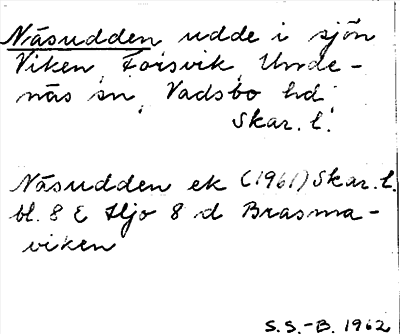 Näsudden udde i sjön
Viken, Forsvik, Unde-
näs sn, Vadsbo hd,
Skar. l.
Näsudden ek (1961) Skar. l.
bl. 8 E Hjo 8 d Brasma-
viken
S.S.-B. 1962